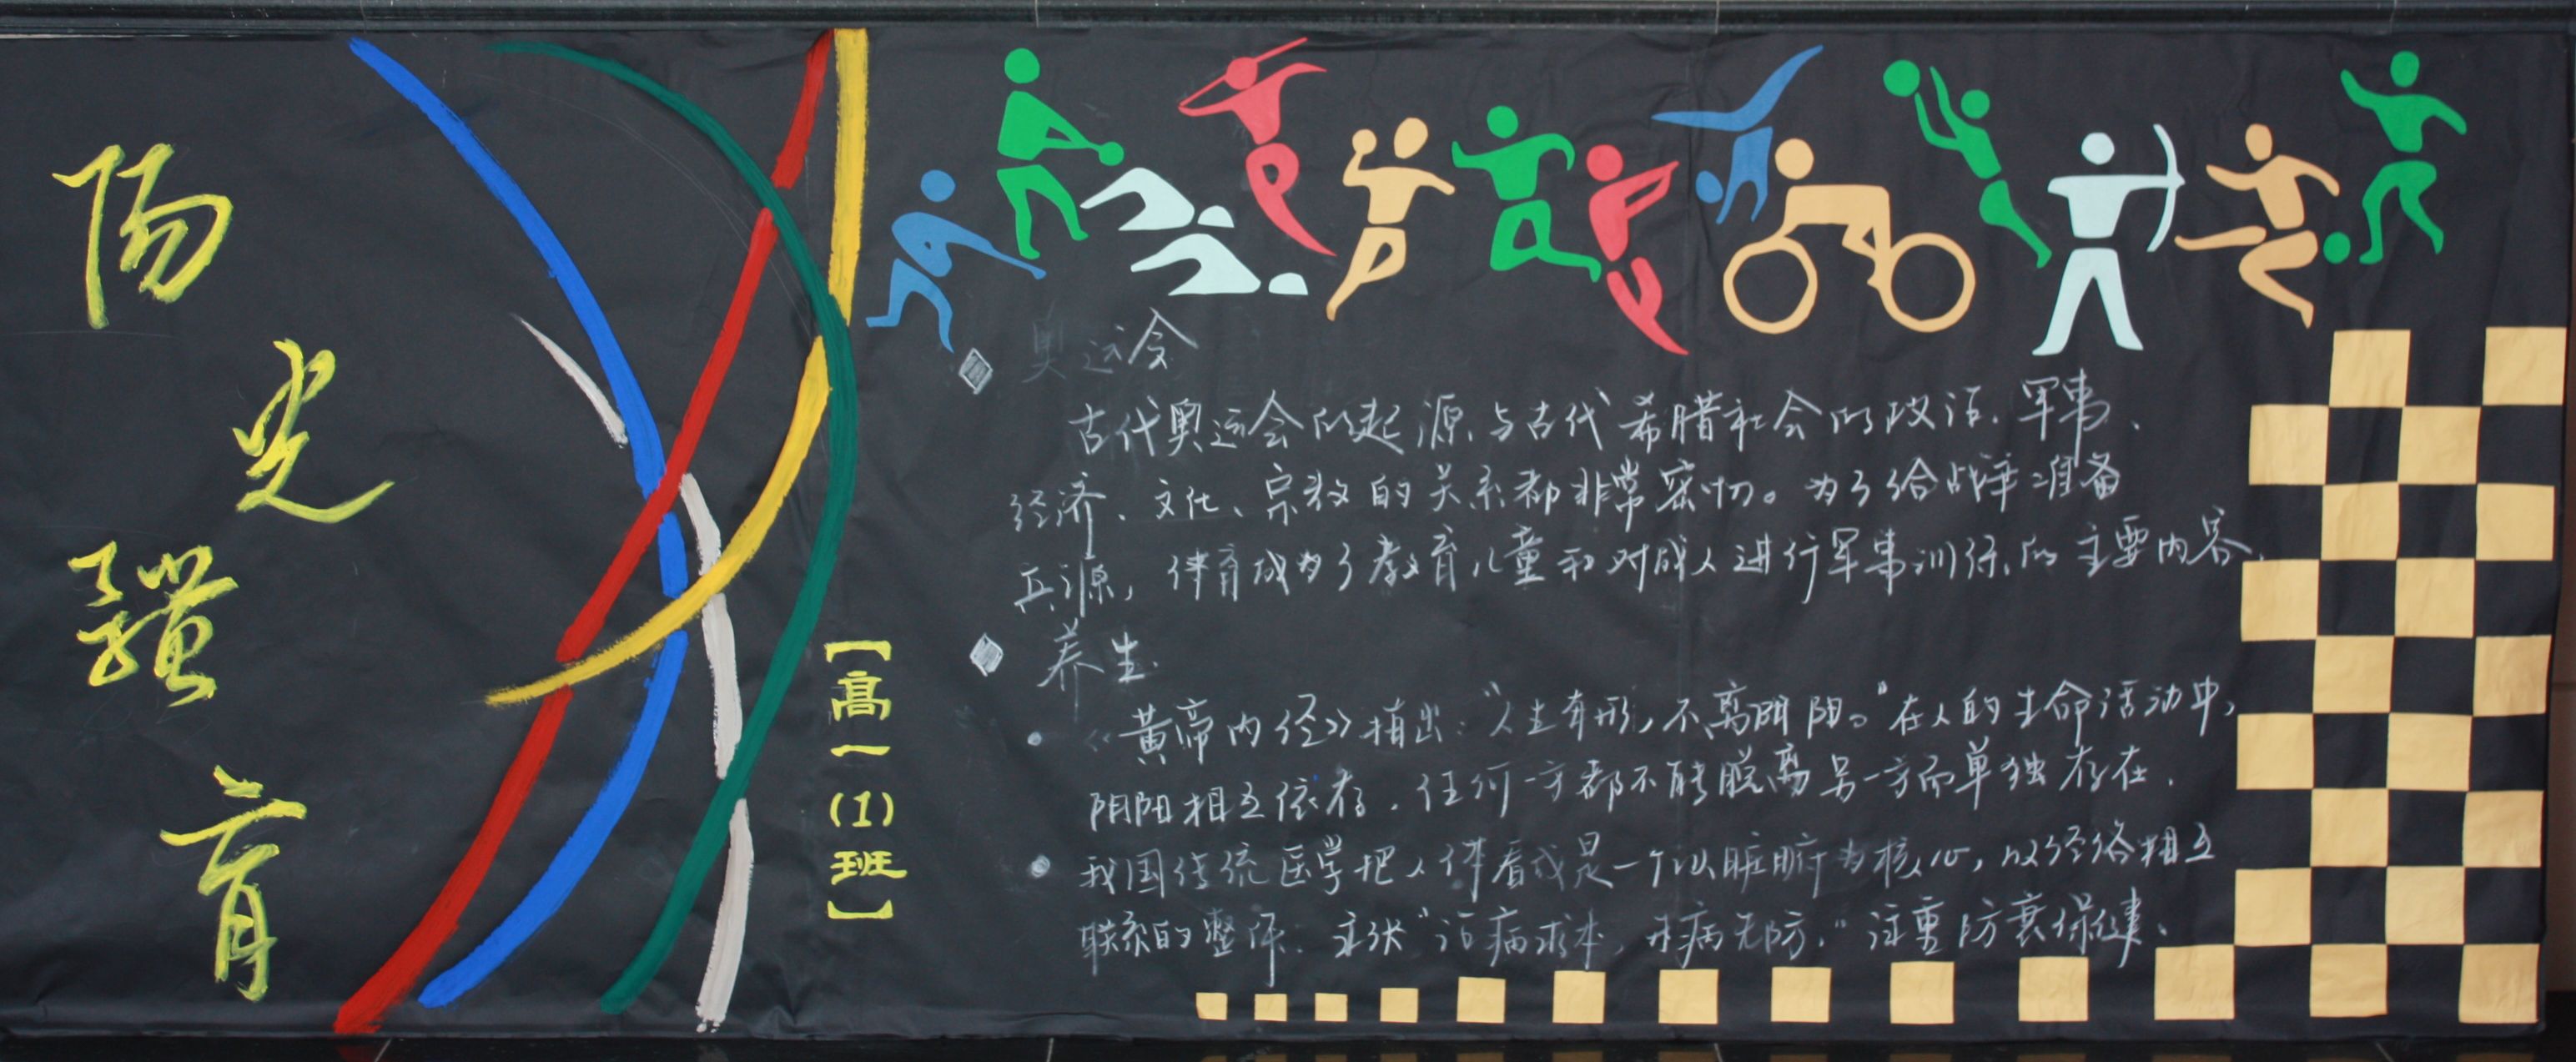 阳
光
體
育
【高一(1)班】
奥运会
古代奥运会的起源与古代希腊社会的政治、军事、
经济、文化、宗教的关系都非常密切。为了给战争准备
兵源，体育成为了教育儿童和对成人进行军事训练的主要内容
养生
《黄帝内经》指出："人生有形，不离阴阳。"在人的生命活动中，
阴阳相互依存，任何一方都不能脱离另一方而单独存在.
我国传统医学把人体看成是一个以脏腑为核心，以经络相互
联系的整体. 主张"治病求本，未病先防，"注重防衰保健.